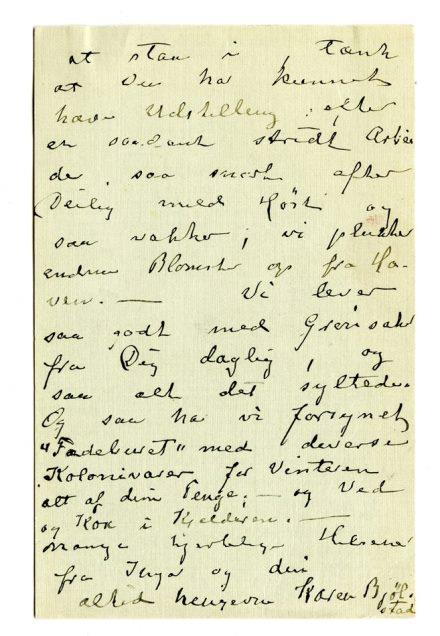 at staa i, tænk
at Du har kunnet
have Udstilling efter
en saadant stridt Arbei-
de, saa snart efter
Deilig mild Høst og
saa vakker; vi plukker
endnu Blomster op fra Ha-
ven. — Vi lever
saa godt med Grønsaker
fra Dig daglig, og
saa alt det syltede.
Og saa har vi forsynet
"Fadeburet" med diverse
Kolonivarer for Vinteren
alt af dine Penge; — og Ved
og Kox i Kjelderen. —
Mange hjertelige Hilsener
fra Inga og din
altid hengivne Karen Bjøl-
stad